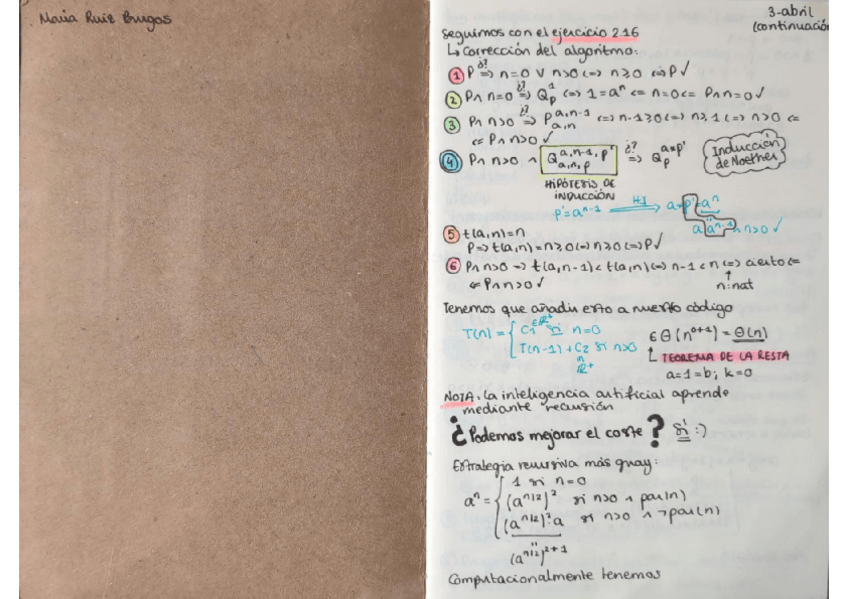 Maria Ruiz Burgos
3-abril
(continuación
Seguimos con el ejercicio 2.16
↳ Corrección del algoritmo:
① P ¿?⇒ n=0 ∨ n>0 ⇔ n≥0 ⇔ P ✓
② P∧n=0 ¿?⇒ Q_p^1 ⇔ 1=aⁿ ⇐ n=0 ⇐ P∧n=0 ✓
③ P∧n>0 ¿?⇒ P_{a,n}^{a,n-1} ⇔ n-1≥0 ⇔ n≥1 ⇔ n>0 ⇐
⇐ P∧n>0 ✓
④ P∧n>0 ∧ Q_{a,n,p}^{a,n-1,p'} ¿?⇒ Q_p^{a*p'}
Inducción de Noether
HIPÓTESIS DE
INDUCCIÓN
p'=aⁿ⁻¹ ⇒ H.I a*p'=aⁿ
a aⁿ⁻¹ ∧ n>0 ✓
⑤ t(a,n)=n
P⇒t(a,n)=n≥0⇔n≥0⇔P✓
⑥ P∧n>0 ⇒ t(a,n-1)<t(a,n)⇔n-1<n⇔cierto⇐
⇐ P∧n>0 ✓
n:nat
Tenemos que añadir esto a nuestro código
T(n) = { C₁ ∈ℝ⁺ si n=0
T(n-1)+C₂ si n>0
ℝ⁺
∈ Θ(n⁰⁺¹) = Θ(n)
TEOREMA DE LA RESTA
a=1=b; k=0
NOTA: la inteligencia artificial aprende
mediante recursión
¿Podemos mejorar el coste? Sí :)
Estrategia recursiva más guay:
aⁿ = { 1 si n=0
(a^{n/2})² si n>0 ∧ par(n)
(a^{n/2})²·a si n>0 ∧ ¬par(n)
(a^{n/2})^{2+1}
Computacionalmente tenemos